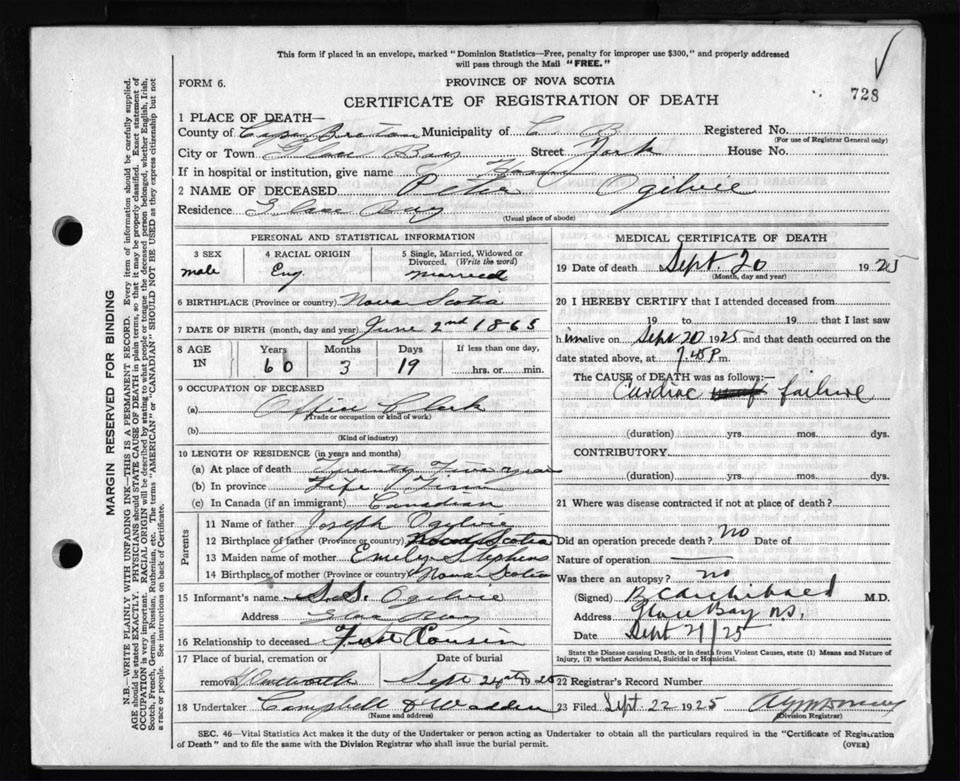 This form if placed in an envelope, marked "Dominion Statistics—Free, penalty for improper use $300," and properly addressed
will pass through the Mail "FREE."
FORM 6.
PROVINCE OF NOVA SCOTIA
728
CERTIFICATE OF REGISTRATION OF DEATH
1 PLACE OF DEATH—
County of Cape Breton Municipality of C. B Registered No.
(For use of Registrar General only)
City or Town Glace Bay Street York House No.
If in hospital or institution, give name
2 NAME OF DECEASED Peter Ogilvie
Residence Glace Bay
(Usual place of abode)
PERSONAL AND STATISTICAL INFORMATION
3 SEX male
4 RACIAL ORIGIN Eng.
5 Single, Married, Widowed or Divorced. (Write the word) married
6 BIRTHPLACE (Province or country) Nova Scotia
7 DATE OF BIRTH (month, day and year) June 2nd 1865
8 AGE IN Years 60 Months 3 Days 19 If less than one day, hrs. or min.
9 OCCUPATION OF DECEASED
(a) Office Clerk
(Trade or occupation or kind of work)
(b)
(Kind of industry)
10 LENGTH OF RESIDENCE (in years and months)
(a) At place of death Twenty years
(b) In province Life Time
(c) In Canada (if an immigrant) Canadian
Parents
11 Name of father Joseph Ogilvie
12 Birthplace of father (Province or country) Nova Scotia
13 Maiden name of mother Emily Stephens
14 Birthplace of mother (Province or country) Nova Scotia
15 Informant's name S. S. Ogilvie
Address Glace Bay
16 Relationship to deceased First Cousin
17 Place of burial, cremation or removal
Date of burial Sept 24 1925
18 Undertaker Campbell & Wadden
(Name and address)
MEDICAL CERTIFICATE OF DEATH
19 Date of death Sept. 20 1925
(Month, day and year)
20 I HEREBY CERTIFY that I attended deceased from
19 to 19 that I last saw
him alive on Sept 20 1925 and that death occurred on the
date stated above, at 7.45 P. m.
The CAUSE of DEATH was as follows:—
Cardiac failure
(duration) yrs. mos. dys.
CONTRIBUTORY
(duration) yrs. mos. dys.
21 Where was disease contracted if not at place of death?
Did an operation precede death? No Date of
Nature of operation
Was there an autopsy? no
(Signed) B Archibald M.D.
Address Glace Bay N.S.
Date Sept 21/25
State the Disease causing Death, or in death from Violent Causes, state (1) Means and Nature of
Injury, (2) whether Accidental, Suicidal or Homicidal.
22 Registrar's Record Number
23 Filed Sept. 22 1925
(Division Registrar)
SEC. 46—Vital Statistics Act makes it the duty of the Undertaker or person acting as Undertaker to obtain all the particulars required in the "Certificate of Registration
of Death" and to file the same with the Division Registrar who shall issue the burial permit.
(OVER)
MARGIN RESERVED FOR BINDING
N.B.—WRITE PLAINLY WITH UNFADING INK—THIS IS A PERMANENT RECORD. Every item of information should be carefully supplied.
AGE should be stated EXACTLY. PHYSICIANS should STATE CAUSE OF DEATH in plain terms, so that it may be properly classified. Exact statement of
OCCUPATION is very important. RACIAL ORIGIN will be described by stating to what people or tongue the deceased person belonged, whether English, Irish,
Scotch, French, German, Russian, Ruthenian, etc. The terms "AMERICAN" or "CANADIAN" SHOULD NOT BE USED as they express citizenship but not
a race or people. See instructions on back of Certificate.